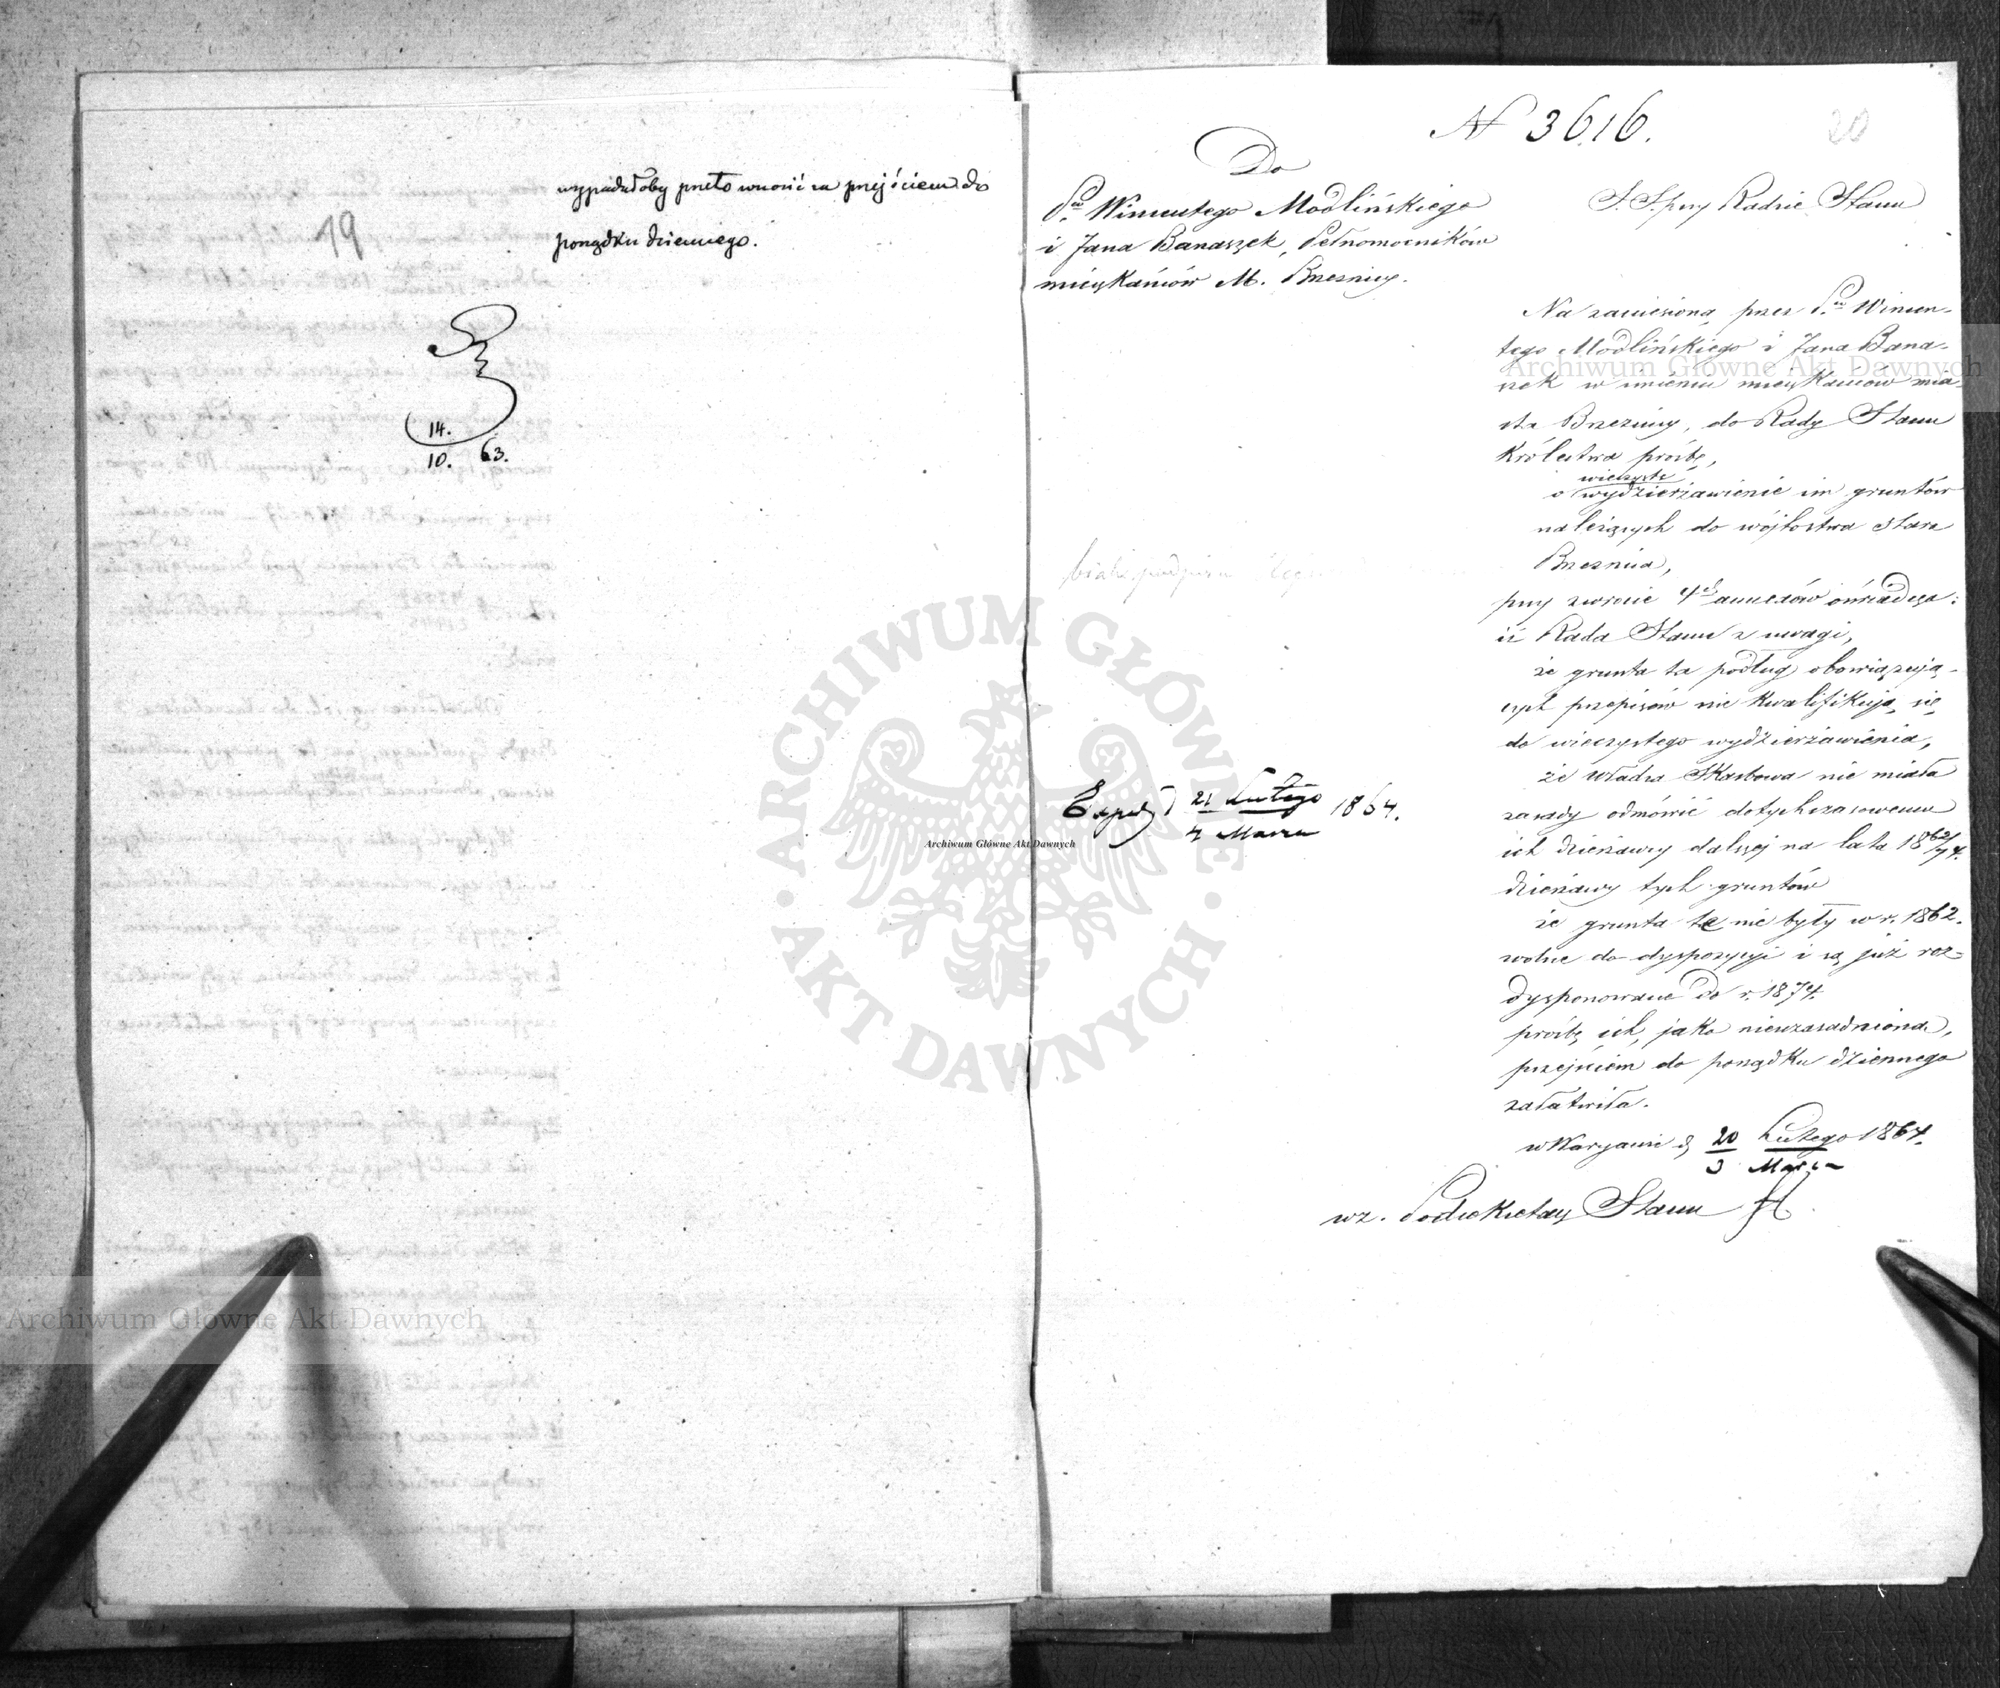 19
wypadałoby przeto wnosić za przejściem do
porządku dziennego.
14.
10. 63.
N 3616.
20
Do
P. Wincentego Modlińskiego
i Jana Banaszek, Pełnomocników
mieszkańców M. Brzeznicy.
S. S. przy Radzie Stanu
Na zaniesioną przez P. Wincen-
tego Modlińskiego i Jana Bana-
szek w imieniu mieszkańców mia-
sta Brzeznicy, do Rady Stanu
Królestwa prośbę,
wieczyste
o wydzierżawienie im gruntów
należących do wójtostwa Stara
Brzeznica,
przy zwrocie 4ch annexów oświadcza:
iż Rada Stanu z uwagi,
że grunta ta podług obowiązują-
cych przepisów nie kwalifikują się
do wieczystego wydzierżawienia,
że władza Skarbowa nie miała
zasady odmówić dotychczasowemu
ich dzierżawcy dalszej na lata 1862/74.
dzierżawy tych gruntów
że grunta te nie były w r. 1862.
wolne do dyspozycyi i są już roz-
dysponowane do r. 1874.
prośbę ich, jako nieuzasadnioną,
przejściem do porządku dziennego
załatwiła.
w Warszawie d. 20 Lutego 1864.
3 Marca
wz. Podsekretarz Stanu
Exped. d 21 Lutego 1864.
4 Marca
Archiwum Główne Akt Dawnych
Archiwum Główne Akt Dawnych
Archiwum Główne Akt Dawnych
ARCHIWUM GŁÓWNE · AKT DAWNYCH ·